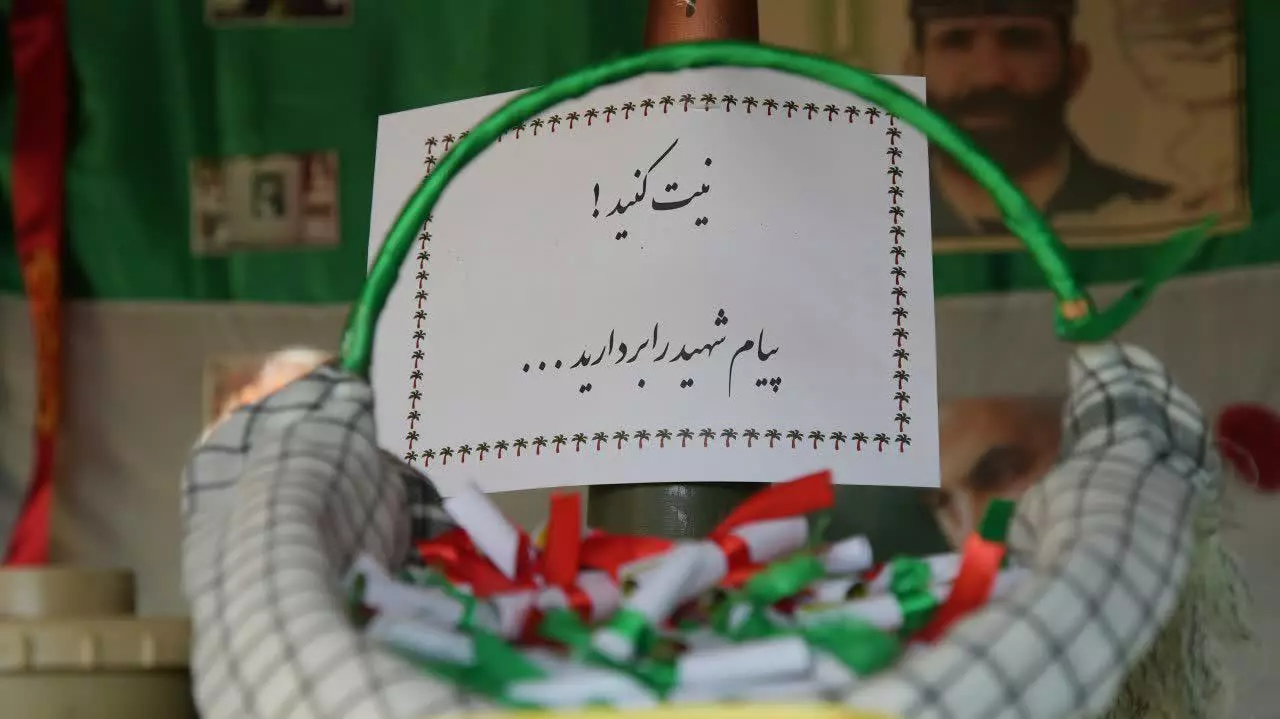 نیت کنید!
پیام شهید را بردارید ...